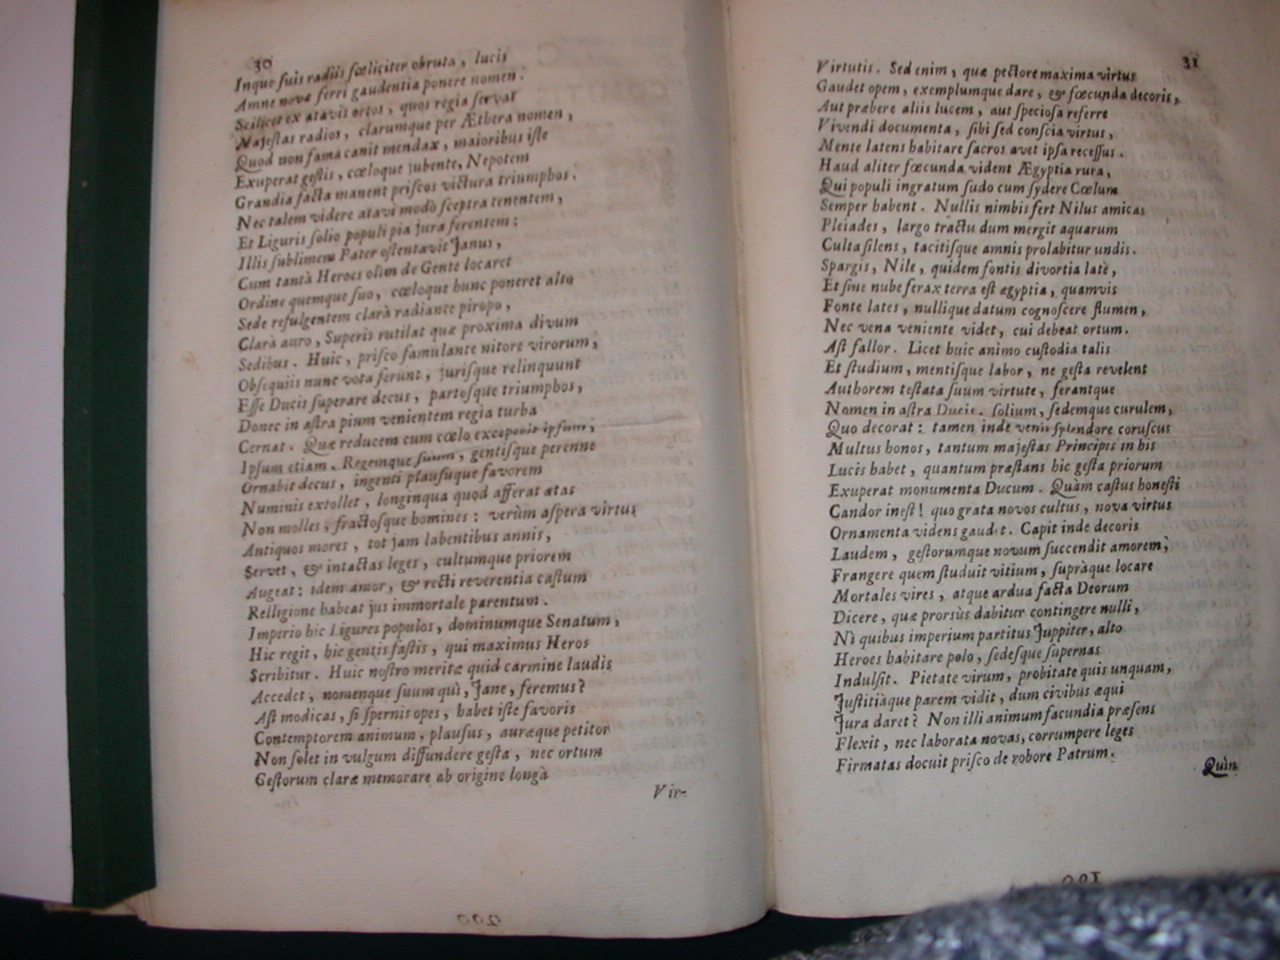 30
Inque suis radiis fœliciter obruta, lucis
Amne novæ ferri gaudentia ponere nomen.
Scilicet ex atavis ortos, quos regia servat
Majestas radios, clarumque per Æthera nomen,
Quod non fama canit mendax, maioribus iste
Exuperat gestis, cœloque jubente, Nepotem
Grandia facta manent priscos victura triumphos.
Nec talem videre atavi modò sceptra tenentem,
Et Liguris solio populi pia jura ferentem:
Illis sublimem Pater ostentavit Janus,
Cum tantà Heroes olim de Gente locaret
Ordine quemque suo, cœloque hunc poneret alto
Sede refulgentem clarà radiante piropo,
Clarà auro, Superis rutilat quæ proxima divum
Sedibus. Huic, prisco famulante nitore virorum,
Obsequiis nunc vota ferunt, jurisque relinquunt
Esse Ducis superare decus, partosque triumphos,
Donec in astra pium venientem regia turba
Cernat. Quæ reducem cum cœlo exceperit ipsum,
Ipsum etiam, Regemque suum, gentisque perenne
Ornabit decus, ingenti plausuque favorem
Numinis extollet, longinqua quod afferat ætas
Non molles, fractosque homines: verùm aspera virtus
Antiquos mores, tot jam labentibus annis,
Servet, & intactas leges, cultumque priorem
Augeat: idem amor, & recti reverentia castum
Relligione habeat jus immortale parentum.
Imperio hic Ligures populos, dominumque Senatum,
Hic regit, hic gentis fastis, qui maximus Heros
Scribitur. Huic nostro meritæ quid carmine laudis
Accedet, nomenque suum quì, Jane, feremus?
Ast modicas, si spernis opes, habet iste favoris
Contemptorem animum, plausus, auræque petitor
Non solet in vulgum diffundere gesta, nec ortum
Gestorum claræ memorare ab origine longà
Vir-
31
Virtutis. Sed enim, quæ pectore maxima virtus
Gaudet opem, exemplumque dare, & fœcunda decoris,
Aut præbere aliis lucem, aut speciosa referre
Vivendi documenta, sibi sed conscia virtus,
Mente latens habitare sacros avet ipsa recessus.
Haud aliter fœcunda vident Ægyptia rura,
Qui populi ingratum sudo cum sydere Cœlum
Semper habent. Nullis nimbis fert Nilus amicas
Pleiades, largo tractu dum mergit aquarum
Culta silens, tacitisque amnis prolabitur undis.
Spargis, Nile, quidem fontis divortia latè,
Et sine nube ferax terra est ægyptia, quamvis
Fonte lates, nullique datum cognoscere flumen,
Nec vena veniente videt, cui debeat ortum.
Ast fallor. Licet huic animo custodia talis
Et studium, mentisque labor, ne gesta revelent
Authorem testata suum virtute, ferantque
Nomen in astra Ducis. solium, sedemque curulem,
Quo decorat: tamen inde venit splendore coruscus
Multus honos, tantum majestas Principis in his
Lucis habet, quantum præstans hic gesta priorum
Exuperat monumenta Ducum. Quàm castus honesti
Candor inest! quo grata novos cultus, nova virtus
Ornamenta videns gaudet. Capit inde decoris
Laudem, gestorumque novum succendit amorem,
Frangere quem studuit vitium, supràque locare
Mortales vires, atque ardua facta Deorum
Dicere, quæ prorsùs dabitur contingere nulli,
Nì quibus imperium partitus Juppiter, alto
Heroes habitare polo, sedesque supernas
Indulsit. Pietate virum, probitate quis unquam,
Justitiàque parem vidit, dum civibus æqui
Jura daret? Non illi animum facundia præsens
Flexit, nec laborata novas, corrumpere leges
Firmatas docuit prisco de robore Patrum.
Quin